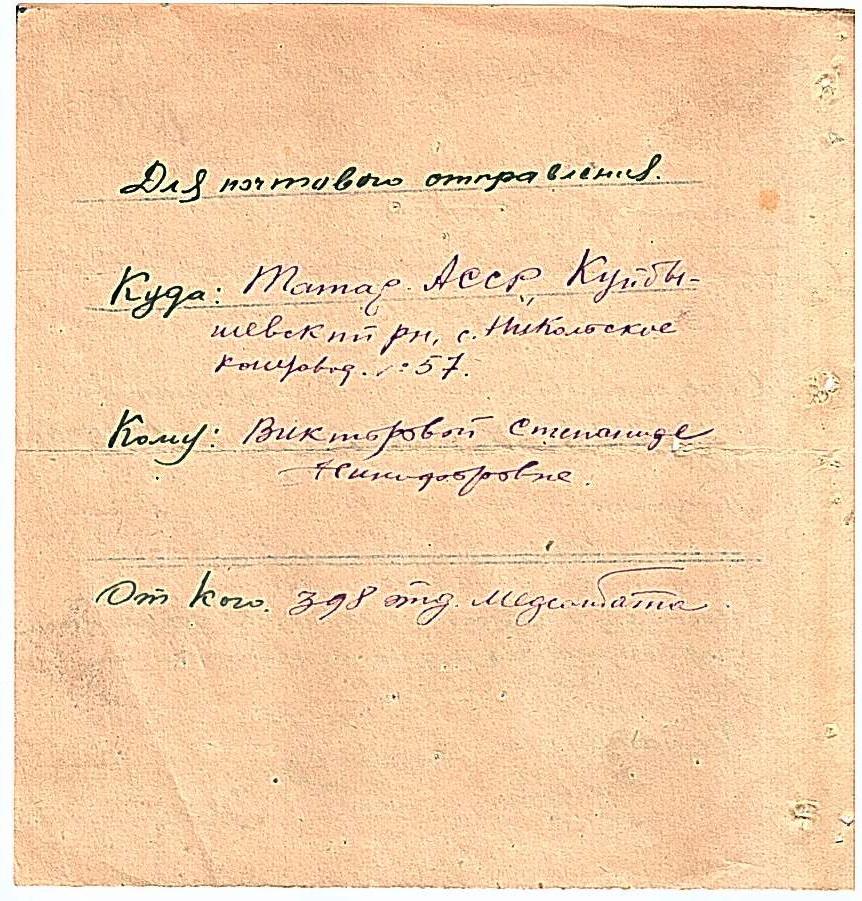 Для почтового отправления.
Куда: Татар. АССР, Куйбы-
шевский рн, с. Никольское
№ 57.
Кому: Викторовой Степаниде
Никифоровне.
От кого. 398 отд. Медсанбата